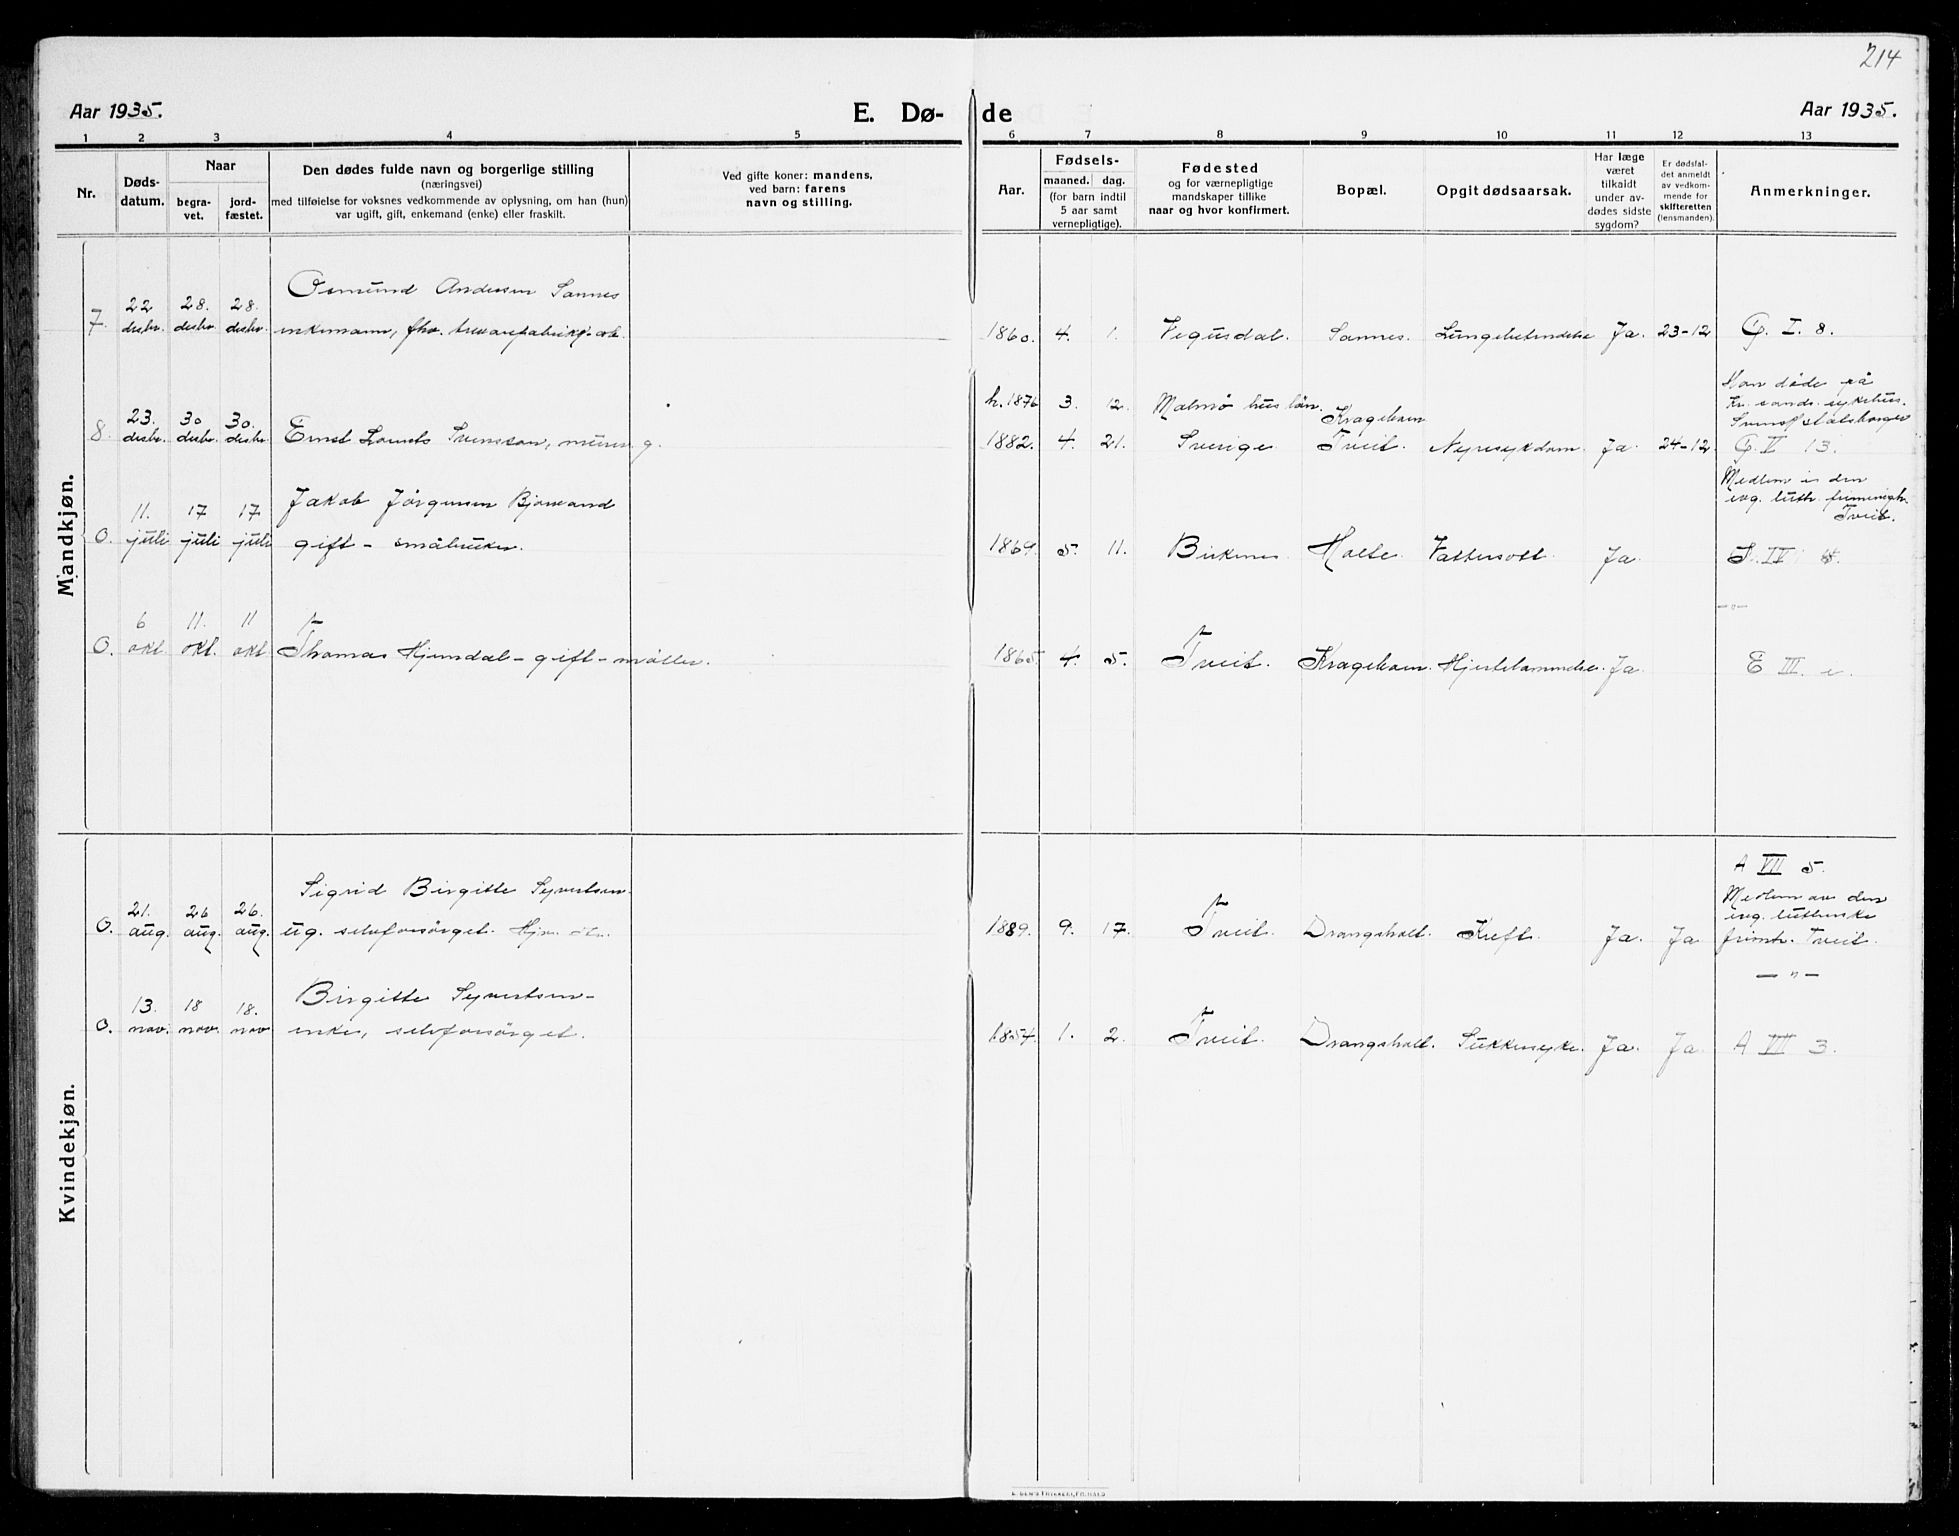 214
Aar 1935.
E. Dø-
de
Aar 1935.
1 2 3 4 5 6 7 8 9 10 11 12 13
Nr.
Døds-
datum.
Naar
begra-
vet.
jord-
fæstet.
Den dødes fulde navn og borgerlige stilling
(næringsvei)
med tilføielse for voksnes vedkommende av oplysning, om han (hun)
var ugift, gift, enkemand (enke) eller fraskilt.
Ved gifte koner: mandens,
ved barn: farens
navn og stilling.
Aar.
Fødsels-
maaned. dag.
(for barn indtil
5 aar samt
vernepligtige).
Fødested
og for værnepligtige
mandskaper tillike
naar og hvor konfirmert.
Bopæl.
Opgit dødsaarsak.
Har læge
været
tilkaldt
under av-
dødes sidste
sygdom?
Er dødsfal-
det anmeldt
av vedkom-
mende for
skifteretten
(lensmanden).
Anmerkninger.
Mandkjøn.
7. 22 desbr. 28. desbr. 28. desbr.
Osmund Andersen Sannes
enkemann, fhv.
1860. 4. 1. Vegusdal. Sannes. Lungebetendelse Ja. 23-12 G. I. 8.
8. 23. desbr. 30 desbr. 30. desbr.
Ernst Svensson, murer, g.
h. 1876 3. 12. Malmø hus län.
Krageboen
Han døde på
Kr.sands sykehus.
Svensk statsborger
1882. 4. 21. Sverige Tveit. Nyresykdom. Ja. 24-12 G. V 13.
0. 11. juli 17 juli 17 juli
Jakob Jörgensen Bjorvand
gift - småbruker.
Medlem i den
evg. luth. frimenigh.
Tveit.
1869. 5. 11. Birkenes Holte. Vattersott. Ja. IV
—"—
0. 6 okt. 11. okt. 11 okt
Thomas Hjemdal - gift - møller.
1865. 4. 5. Tveit. Krageboen. Hjertelammelse. Ja. E III. e.
Kvindekjøn.
0. 21. aug. 26 aug. 26. aug.
Sigrid Birgitte Syvertsen-
ug. selvforsörget.
A VII 5.
Medlem av den
evg. lutherske
frimh. Tveit.
1889. 9. 17. Tveit. Drangsholt. Kreft. Ja. Ja
—"—
0. 13. nov. 18 nov. 18. nov
Birgitte Syvertsen-
enke, selvforsörget.
1854. 1. 2. Tveit. Drangsholt. Sukkersyke. Ja. Ja. A VII 3.